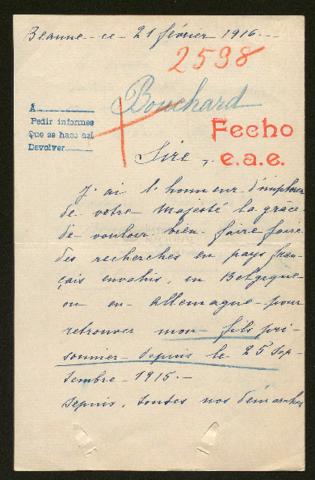 Beaune - ce - 21 février 1916. -
2598
Bouchard
A
Pedir informes
Que se haga así
Devolver
Fecho
e.a.e.
Sire,
J'ai l'honneur d'implorer
de votre Majesté la grâce
de vouloir bien faire faire
des recherches en pays fran-
çais envahis, en Belgique -
ou en Allemagne - pour
retrouver mon fils pri-
sonnier depuis le 25 Sep-
tembre - 1915. -
Depuis, toutes nos démarches